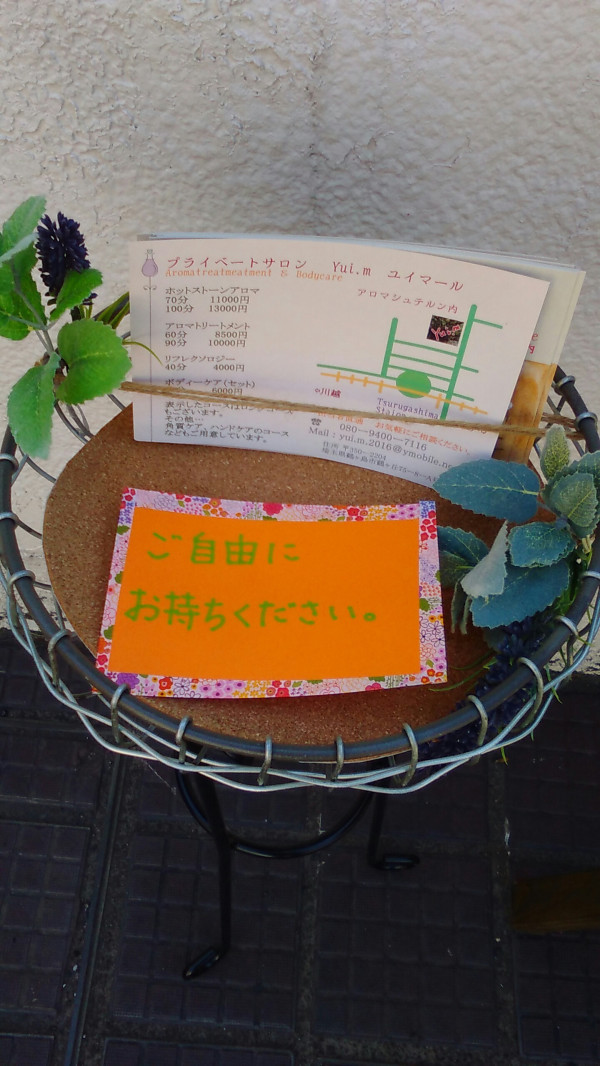 プライベートサロン Yui.m ユイマール
Aromatreatmeatment & Bodycare
アロマシュテルン内
ホットストーンアロマ
70分 11000円
100分 13000円
アロマトリートメント
60分 8500円
90分 10000円
リフレクソロジー
40分 4000円
ボディーケア(セット)
6000円
表示したコース
もございます。
その他…
角質ケア、ハンドケアのコース
などもご用意しています。
Yui.m
川越
Tsurugashima
お気軽にご相談ください。
080-9400-7116
Mail:yui.m.2016@ymobile.ne
住所 〒350-2204
埼玉県鶴ヶ島市鶴ヶ丘
ご自由に
お持ちください。